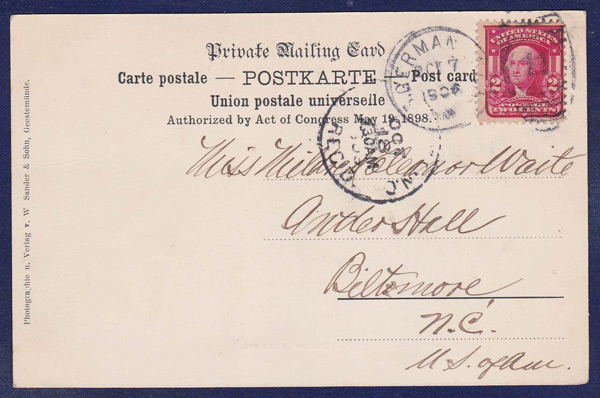 Private Mailing Card
Carte postale — POSTKARTE — Post card
Union postale universelle
Authorized by Act of Congress May 19, 1898.
GERMAN
OCT 7
UNITED STATES
OF AMERICA
2 2
TWO CENTS
OCT
18
730AM
N.C.
REC'D
Miss Mildred Eleanor Waite
Ander Hall
Biltmore
N.C.
U.S. of Am.
Photographie u. Verlag v. W Sander & Sohn, Geestemünde.